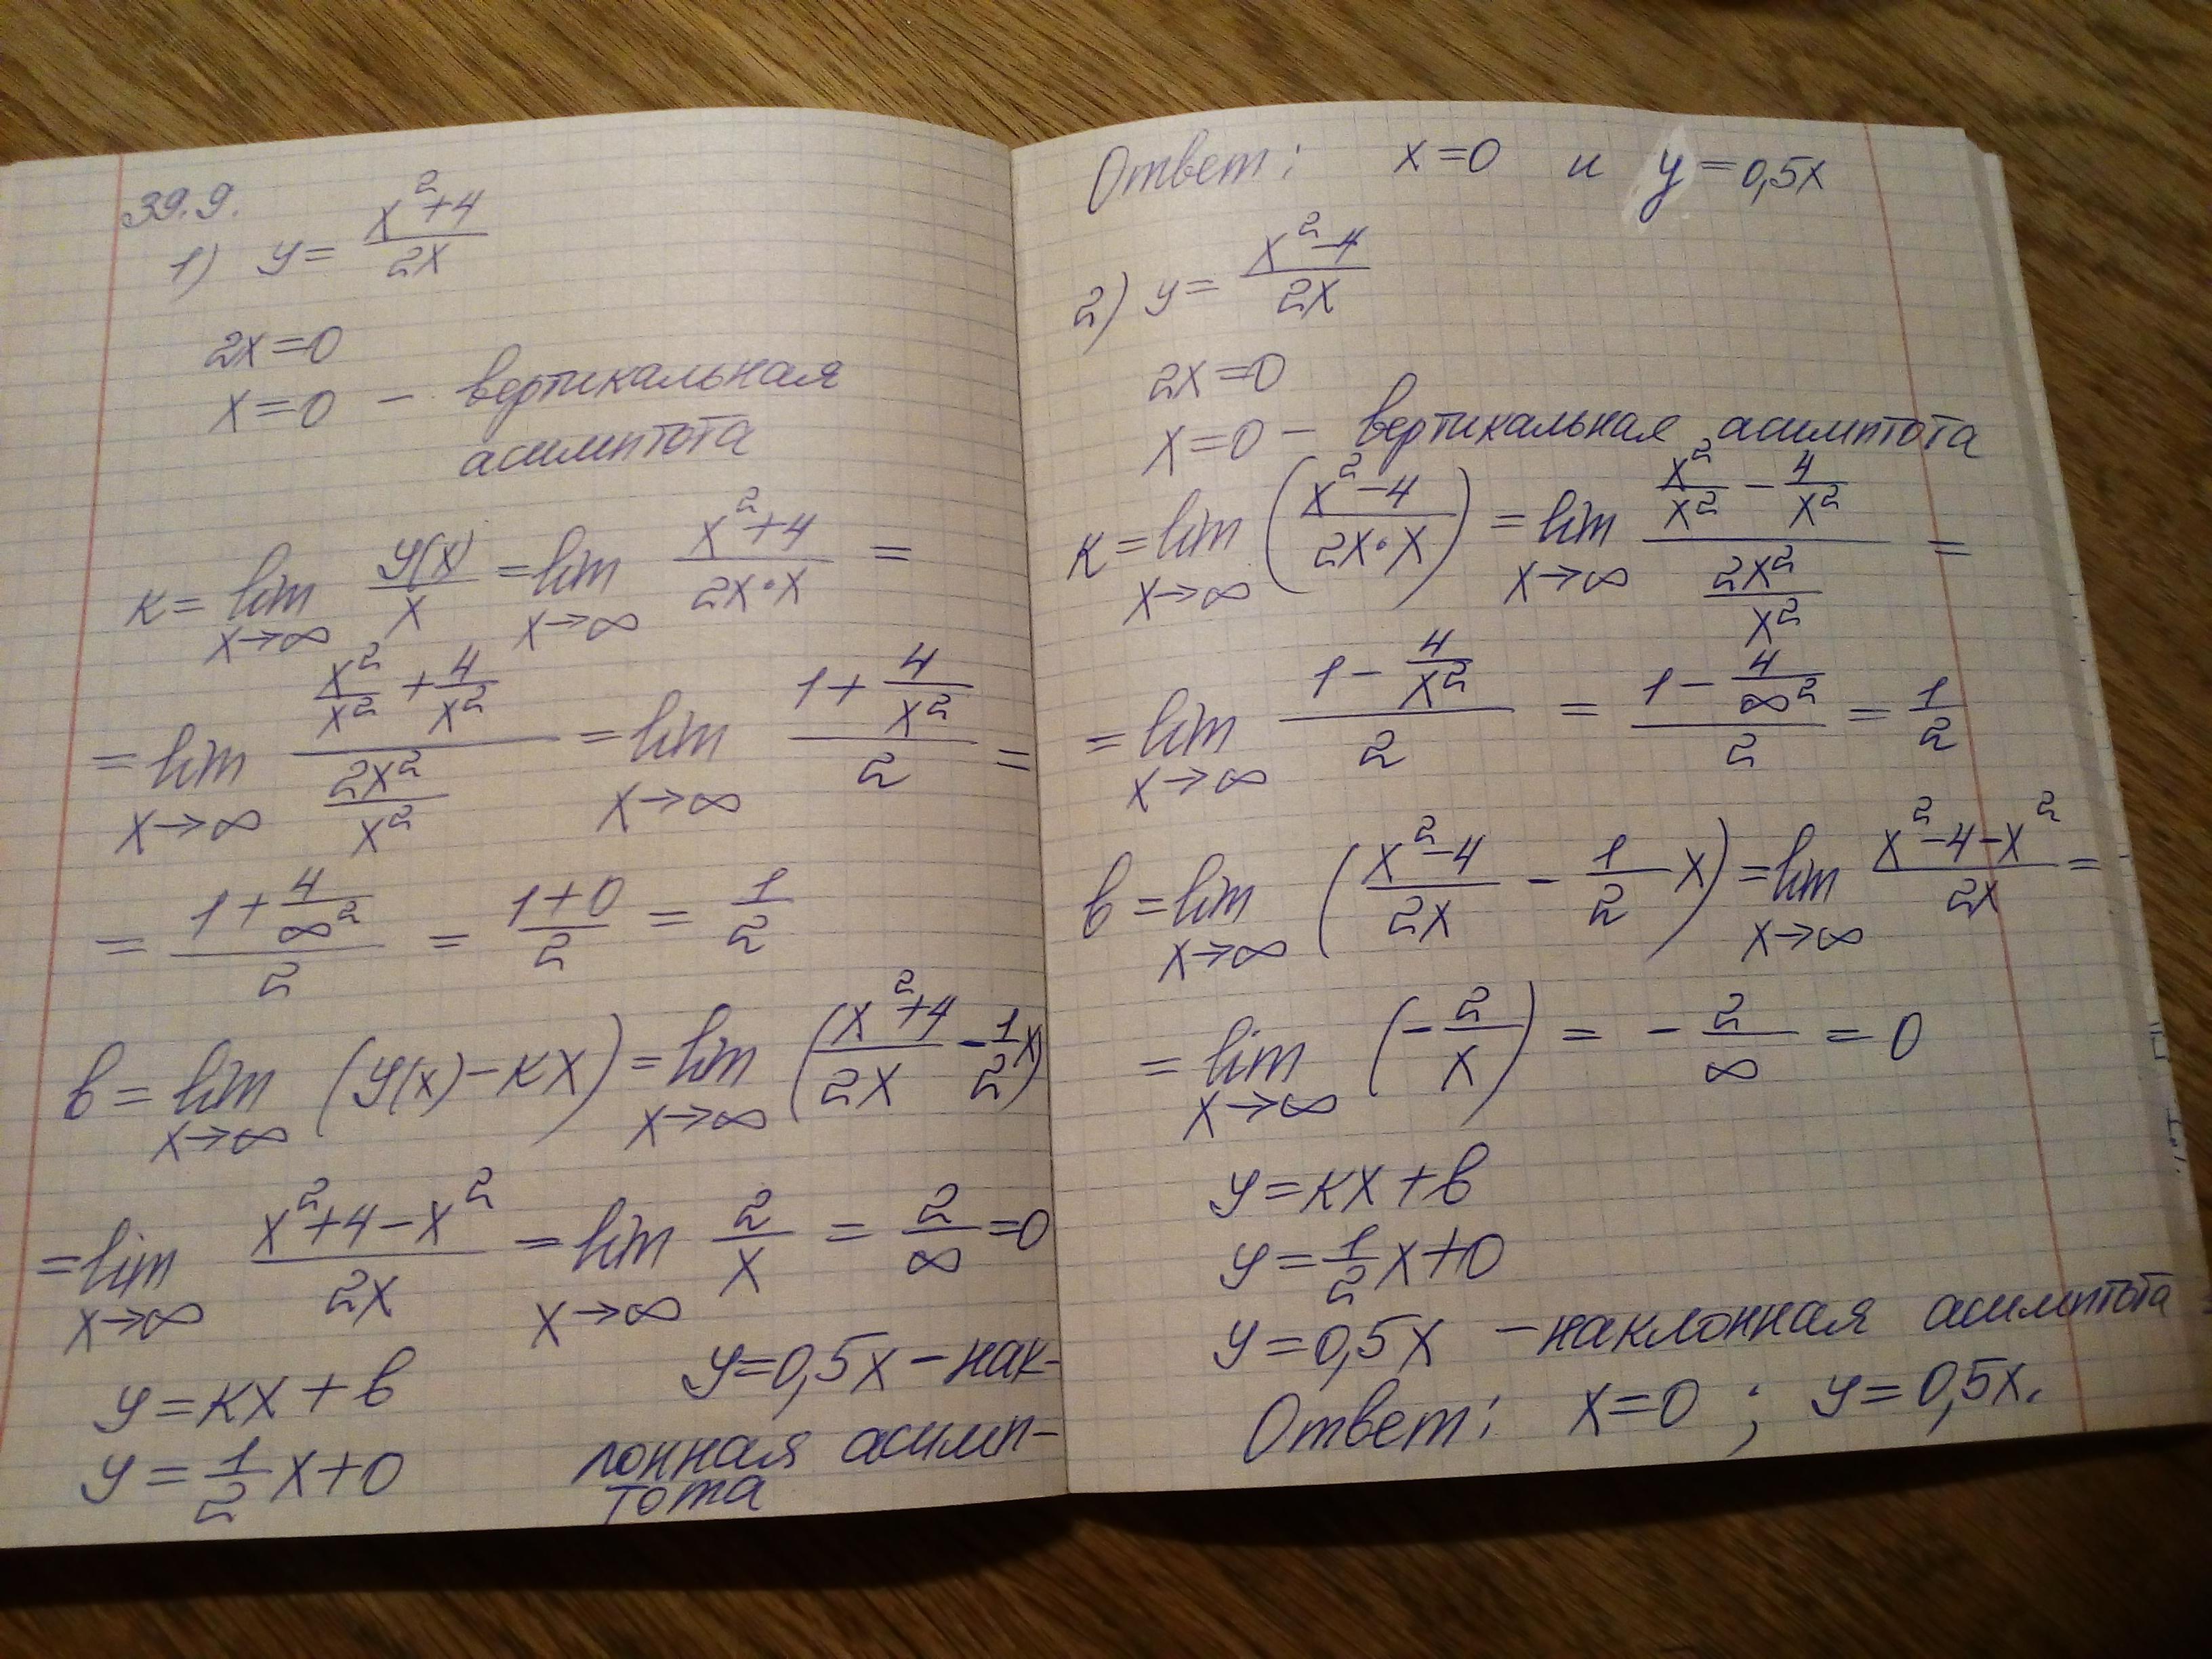 39.9.
1) y = (x²+4)/(2x)
2x=0
x=0 – вертикальная
асимптота
к = lim x→∞ y(x)/x = lim x→∞ (x²+4)/(2x·x) =
= lim x→∞ (x²/x² + 4/x²)/(2x²/x²) = lim x→∞ (1+4/x²)/2 =
= (1+4/∞²)/2 = (1+0)/2 = 1/2
в = lim x→∞ (y(x)–кx) = lim x→∞ ((x²+4)/(2x) – 1/2 x)
= lim x→∞ (x²+4–x²)/(2x) = lim x→∞ 2/x = 2/∞ = 0
y=кx+в
y = 1/2 x+0
y=0,5x – нак-
лонная асимп-
тота
Ответ: x=0 и y=0,5x
2) y = (x²–4)/(2x)
2x=0
x=0 – вертикальная асимптота
к = lim x→∞ ((x²–4)/(2x·x)) = lim x→∞ (x²/x² – 4/x²)/(2x²/x²) =
= lim x→∞ (1–4/x²)/2 = (1–4/∞²)/2 = 1/2
в = lim x→∞ ((x²–4)/(2x) – 1/2 x) = lim x→∞ (x²–4–x²)/(2x) =
= lim x→∞ (–2/x) = –2/∞ = 0
y=кx+в
y=1/2 x+0
y=0,5x – наклонная асимптота
Ответ: x=0 ; y=0,5x.